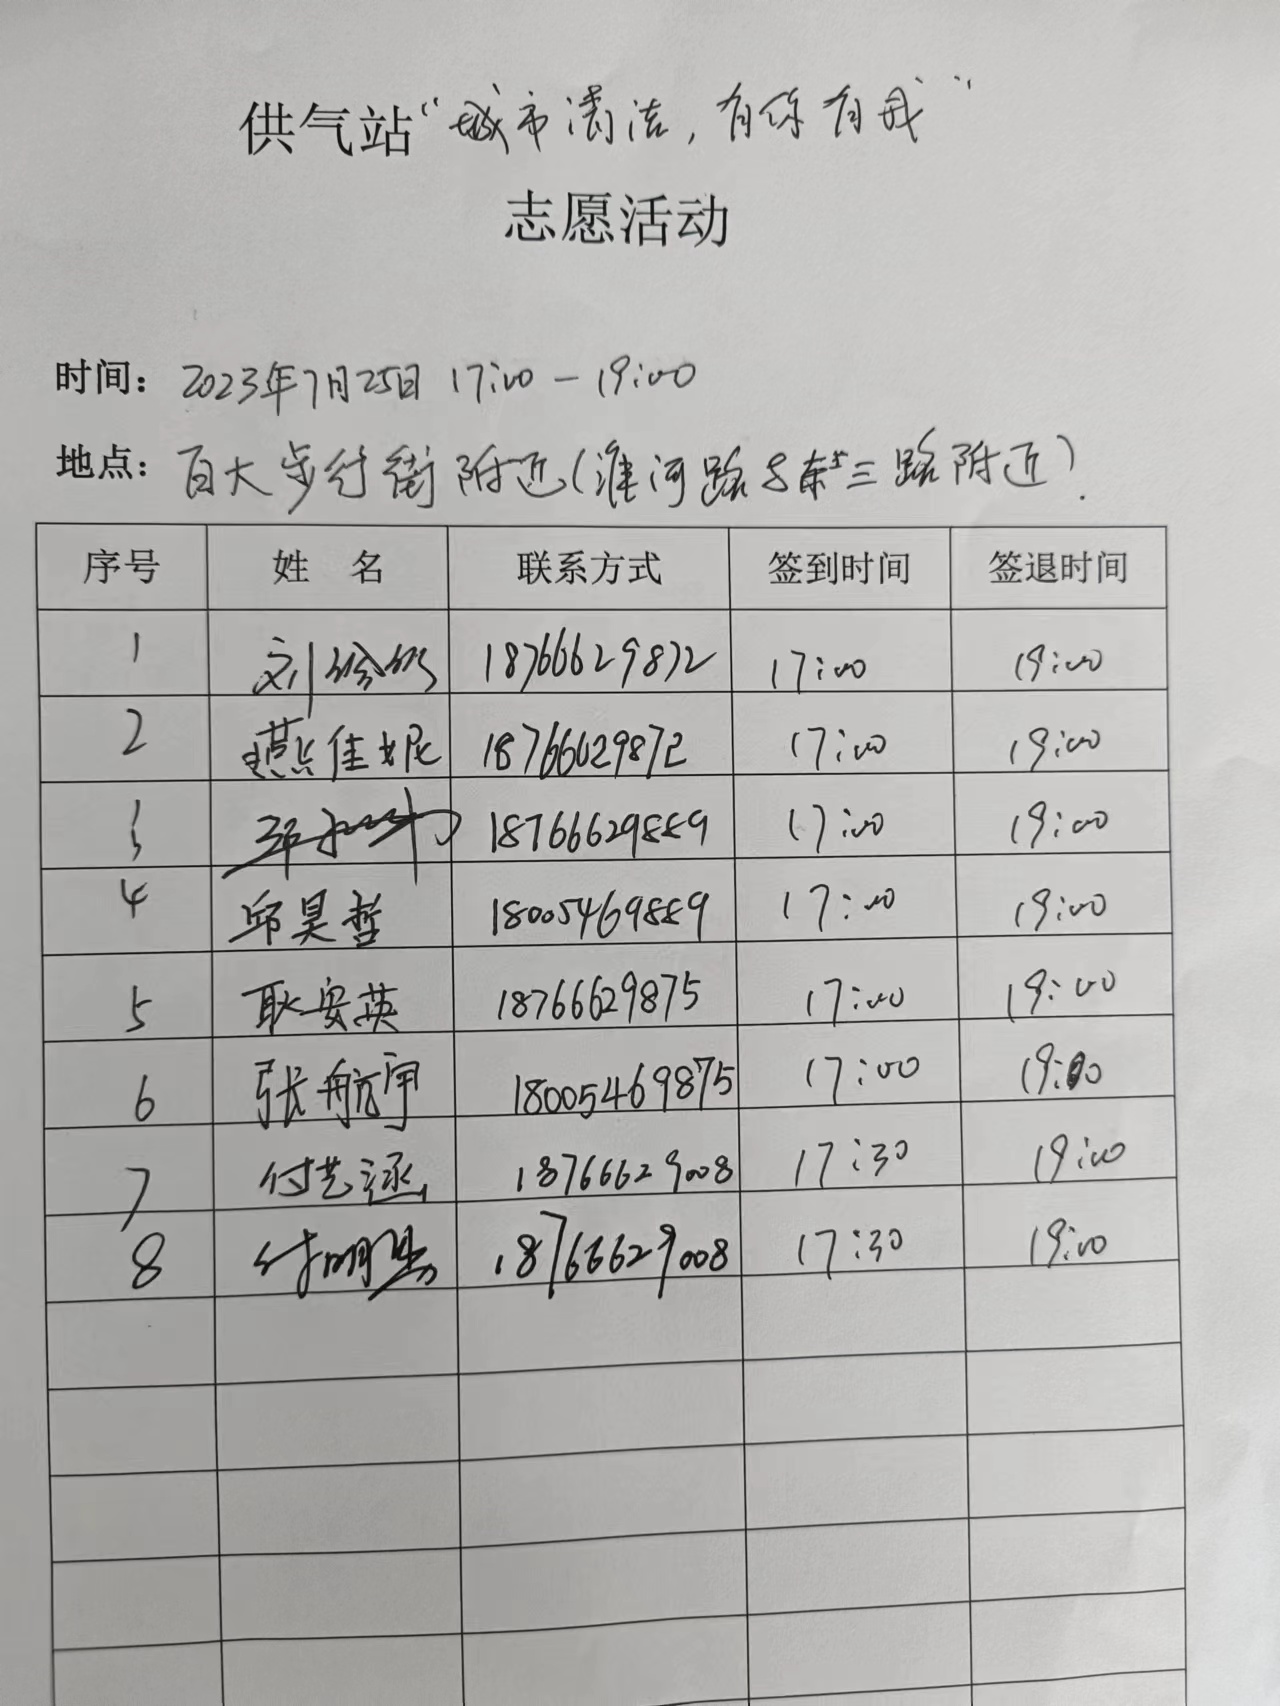 供气站“城市清洁，有你有我”
志愿活动
时间：2023年7月25日 17:00－19:00
地点：百大步行街附近(淮河路与东三路附近).
序号 姓 名 联系方式 签到时间 签退时间
1 刘 18766629872 17:00 19:00
2 燕佳妮 18766629872 17:00 19:00
3 18766629889 17:00 19:00
4 邱昊哲 18005469889 17:00 19:00
5 耿安英 18766629875 17:00 19:00
6 张航宇 18005469875 17:00 19:00
7 付艺涵 18766629008 17:30 19:00
8 付明 18766629008 17:30 19:00